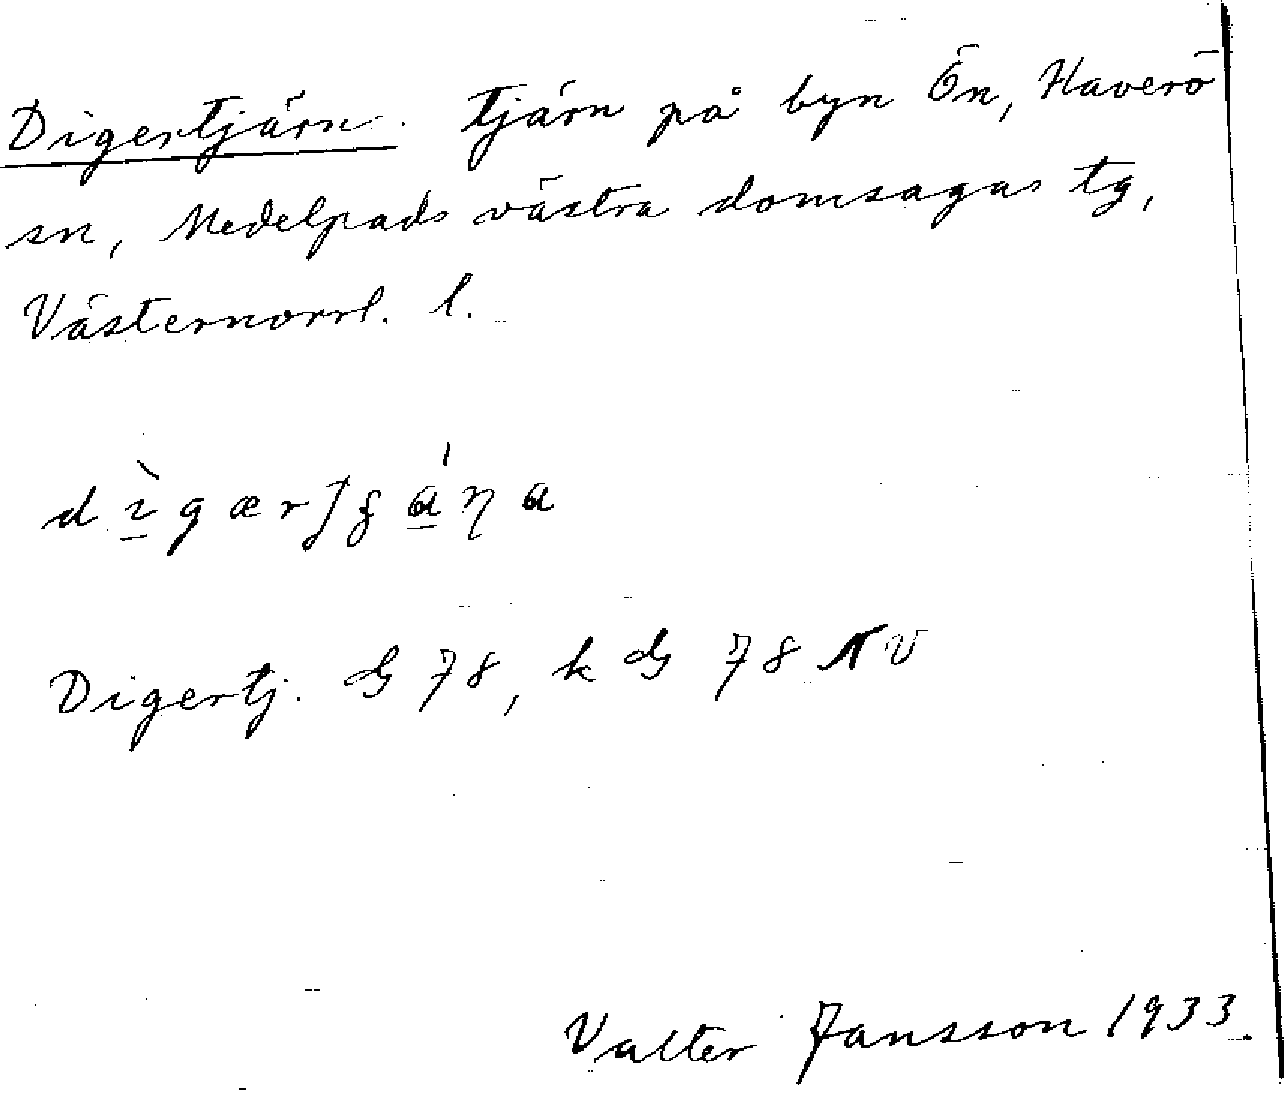 Digertjärn. Tjärn på byn Ön, Haverö
sn, Medelpads västra domsagas tg,
Västernorrl. l.
Digertj. G 78, k G 78 NV
Valter Jansson 1933.